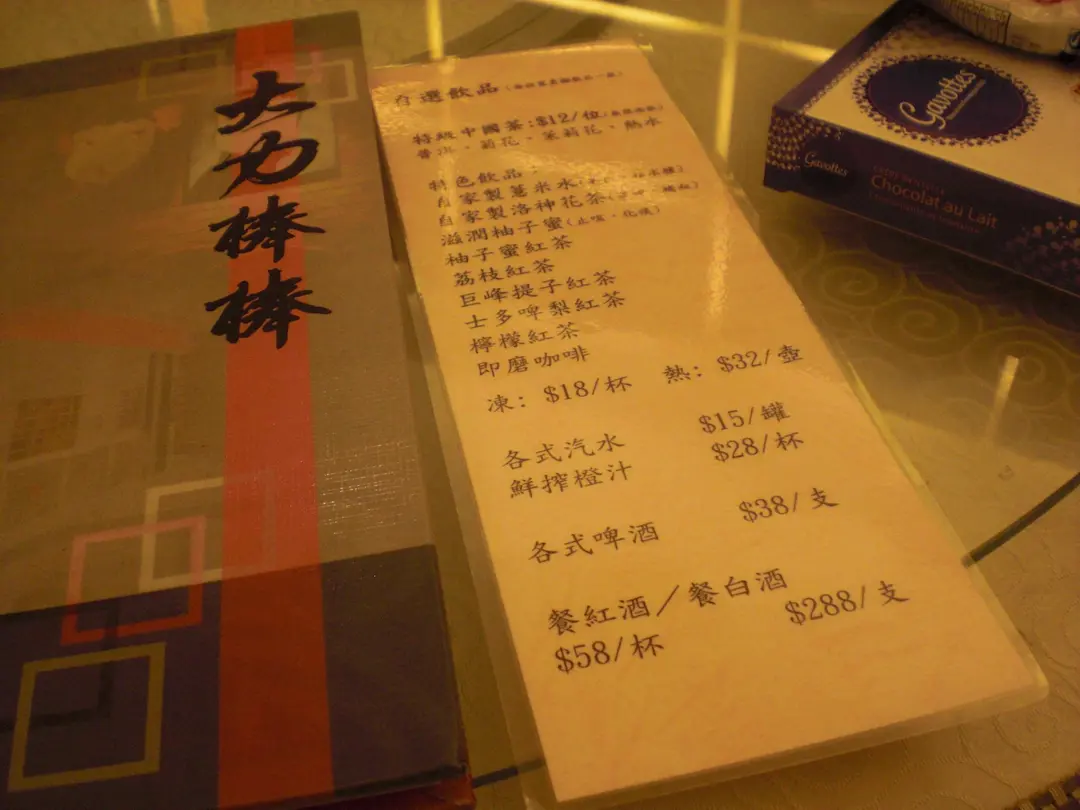 大力棒棒
自選飲品
特級中國茶:$12/位
普洱。菊花。茉莉花。熱水
特色飲品:
自家製薏米水
自家製洛神花茶
滋潤柚子蜜(止咳、化痰)
柚子蜜紅茶
荔枝紅茶
巨峰提子紅茶
士多啤梨紅茶
檸檬紅茶
即磨咖啡
凍: $18/杯 熱: $32/壺
各式汽水 $15/罐
鮮搾橙汁 $28/杯
各式啤酒 $38/支
餐紅酒/餐白酒
$58/杯 $288/支
Gavottes
Gavottes
Chocolat au Lait